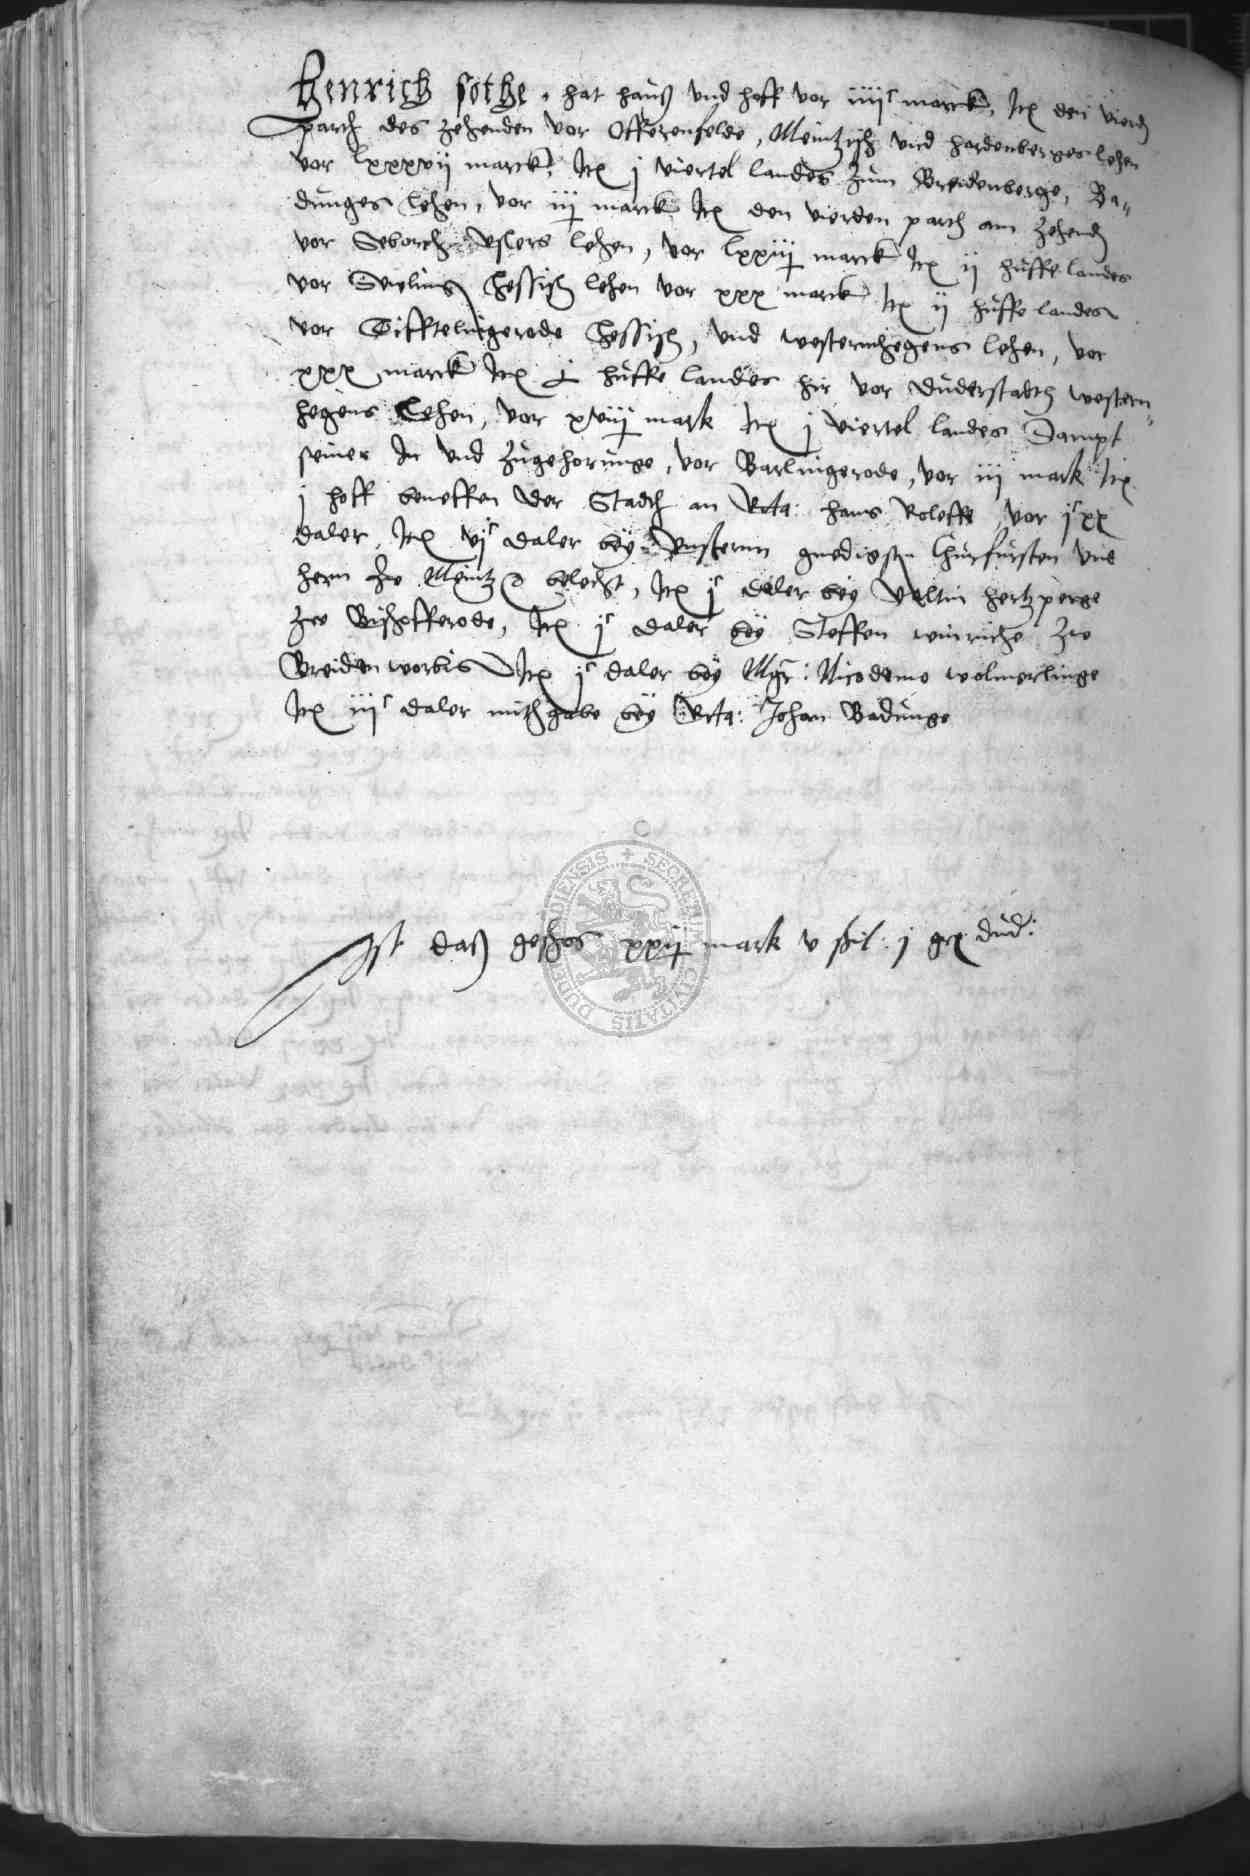 Henrich sothe . hat hauß vnd hoff vor iiijc marck, Itē den vierd
parth des zehenden vor Offerenfelde, Meintzisch vnd hardenberges lehen
vor lxxxvij marck, Itē j viertel landes zum Breidenberge, Ba„
dunges lehen, vor iij marck Itē den vierden parth am zehend
vor Seborch Vslers lehen, vor lxxiij marck Itē ij huffe landes
vor hessisch lehen vor xxx marck Itē ij huffe landes
vor Tifftelingerode hessisch, vnd westernhegens lehen, vor
xxx marck Itē huffe landes hir vor duderstadth western„
hegens lehen, vor xviij mark Itē j viertel landes sampt
seiner In vnd zugehorunge, vor Barlingerode, vor iij mark Itē
j hoff beneffen der Stadth an hans Roleffe vor jc xx
daler, Itē vjc daler bey vnserm gnedigsten Churfursten vnd
hern zu Meintz belecht, Itē jc daler bey Valtin hertzperge
zu Bischofferode, Itē jc daler bey Steffen winriche zu
Breidenworbis Itē jc daler bey Mgr: Nicodemo wolmerlinge
Itē iijc daler mithgabe bey Johan Badunge
Ist daß geschos xxij mark v sil: j gr dud:
DUDERSTADIENSIS + SECRETUM CIVITATIS